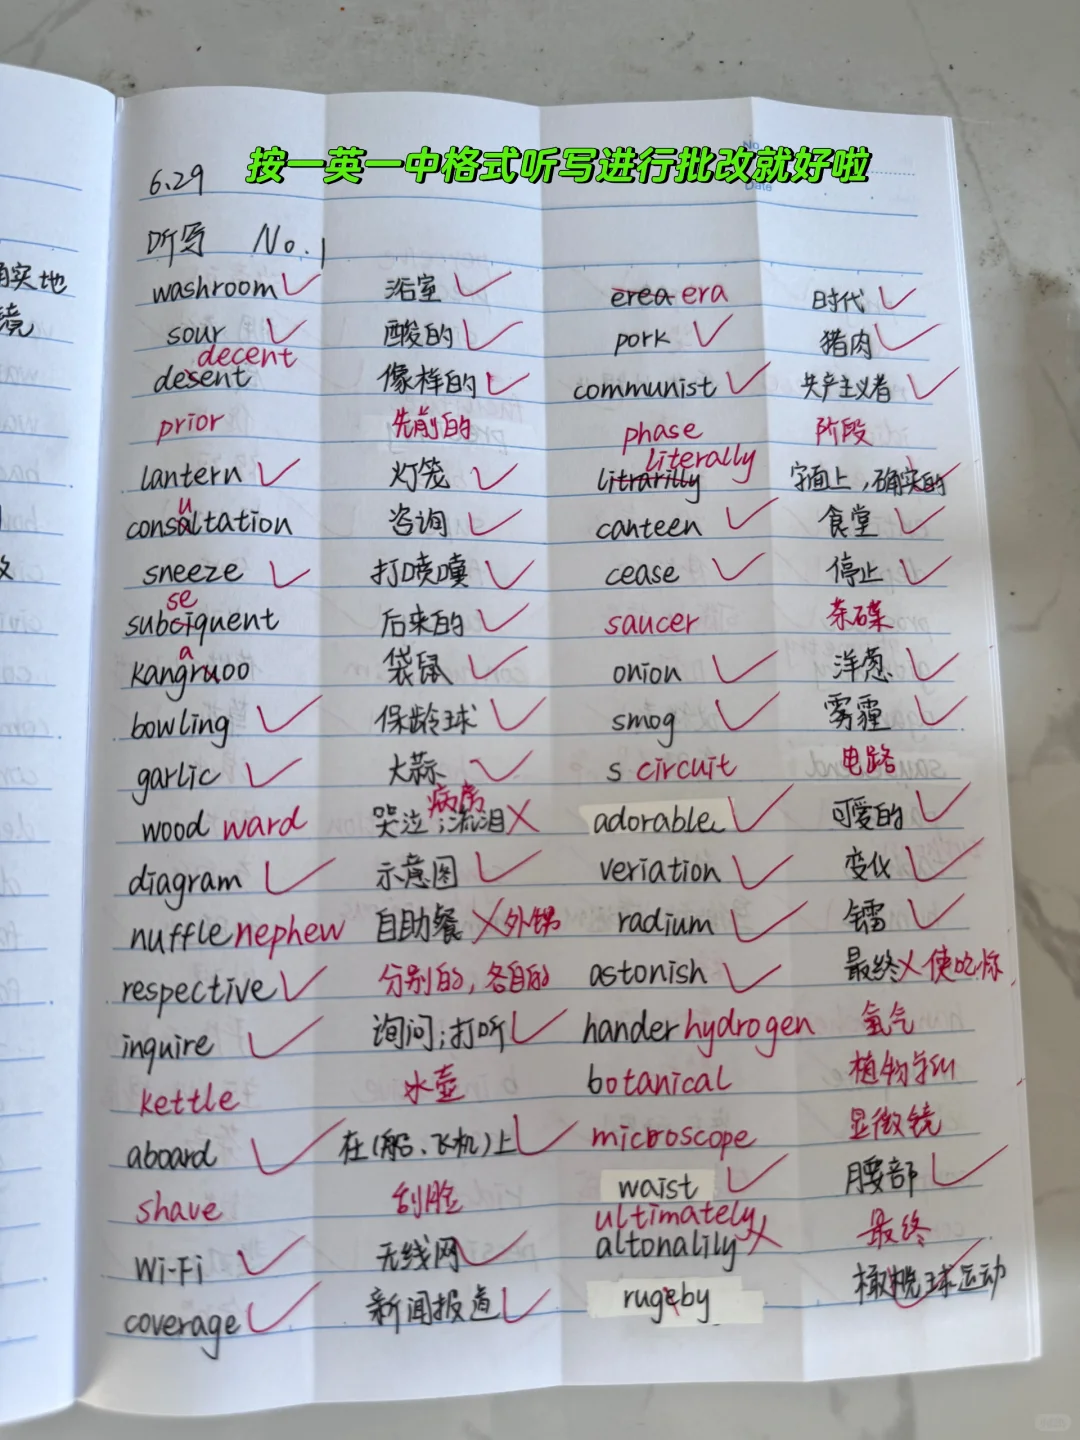 按一英一中格式听写进行批改就好啦
No.
Date
6.29
听写 No.1
washroom 浴室 erea era 时代
sour 酸的 pork 猪肉
decent
desent 像样的 communist 共产主义者
prior 先前的 phase 阶段
literally
lantern 灯笼 litrarilly 字面上,确实的
u
consaltation 咨询 canteen 食堂
sneeze 打喷嚏 cease 停止
se
subciquent 后来的 saucer 茶碟
a
kangruoo 袋鼠 onion 洋葱
bowling 保龄球 smog 雾霾
garlic 大蒜 s circuit 电路
病房
wood ward 哭泣;流泪 adorable 可爱的
diagram 示意图 veriation 变化
nuffle nephew 自助餐 外甥 radium 镭
respective 分别的,各自的 astonish 最终 使吃惊
inquire 询问;打听 hander hydrogen 氢气
kettle 水壶 botanical 植物学的
aboard 在(船、飞机)上 microscope 显微镜
shave 刮脸 waist 腰部
ultimately
Wi-Fi 无线网 altonalily 最终
coverage 新闻报道 rugeby 橄榄球运动
确实地
镜